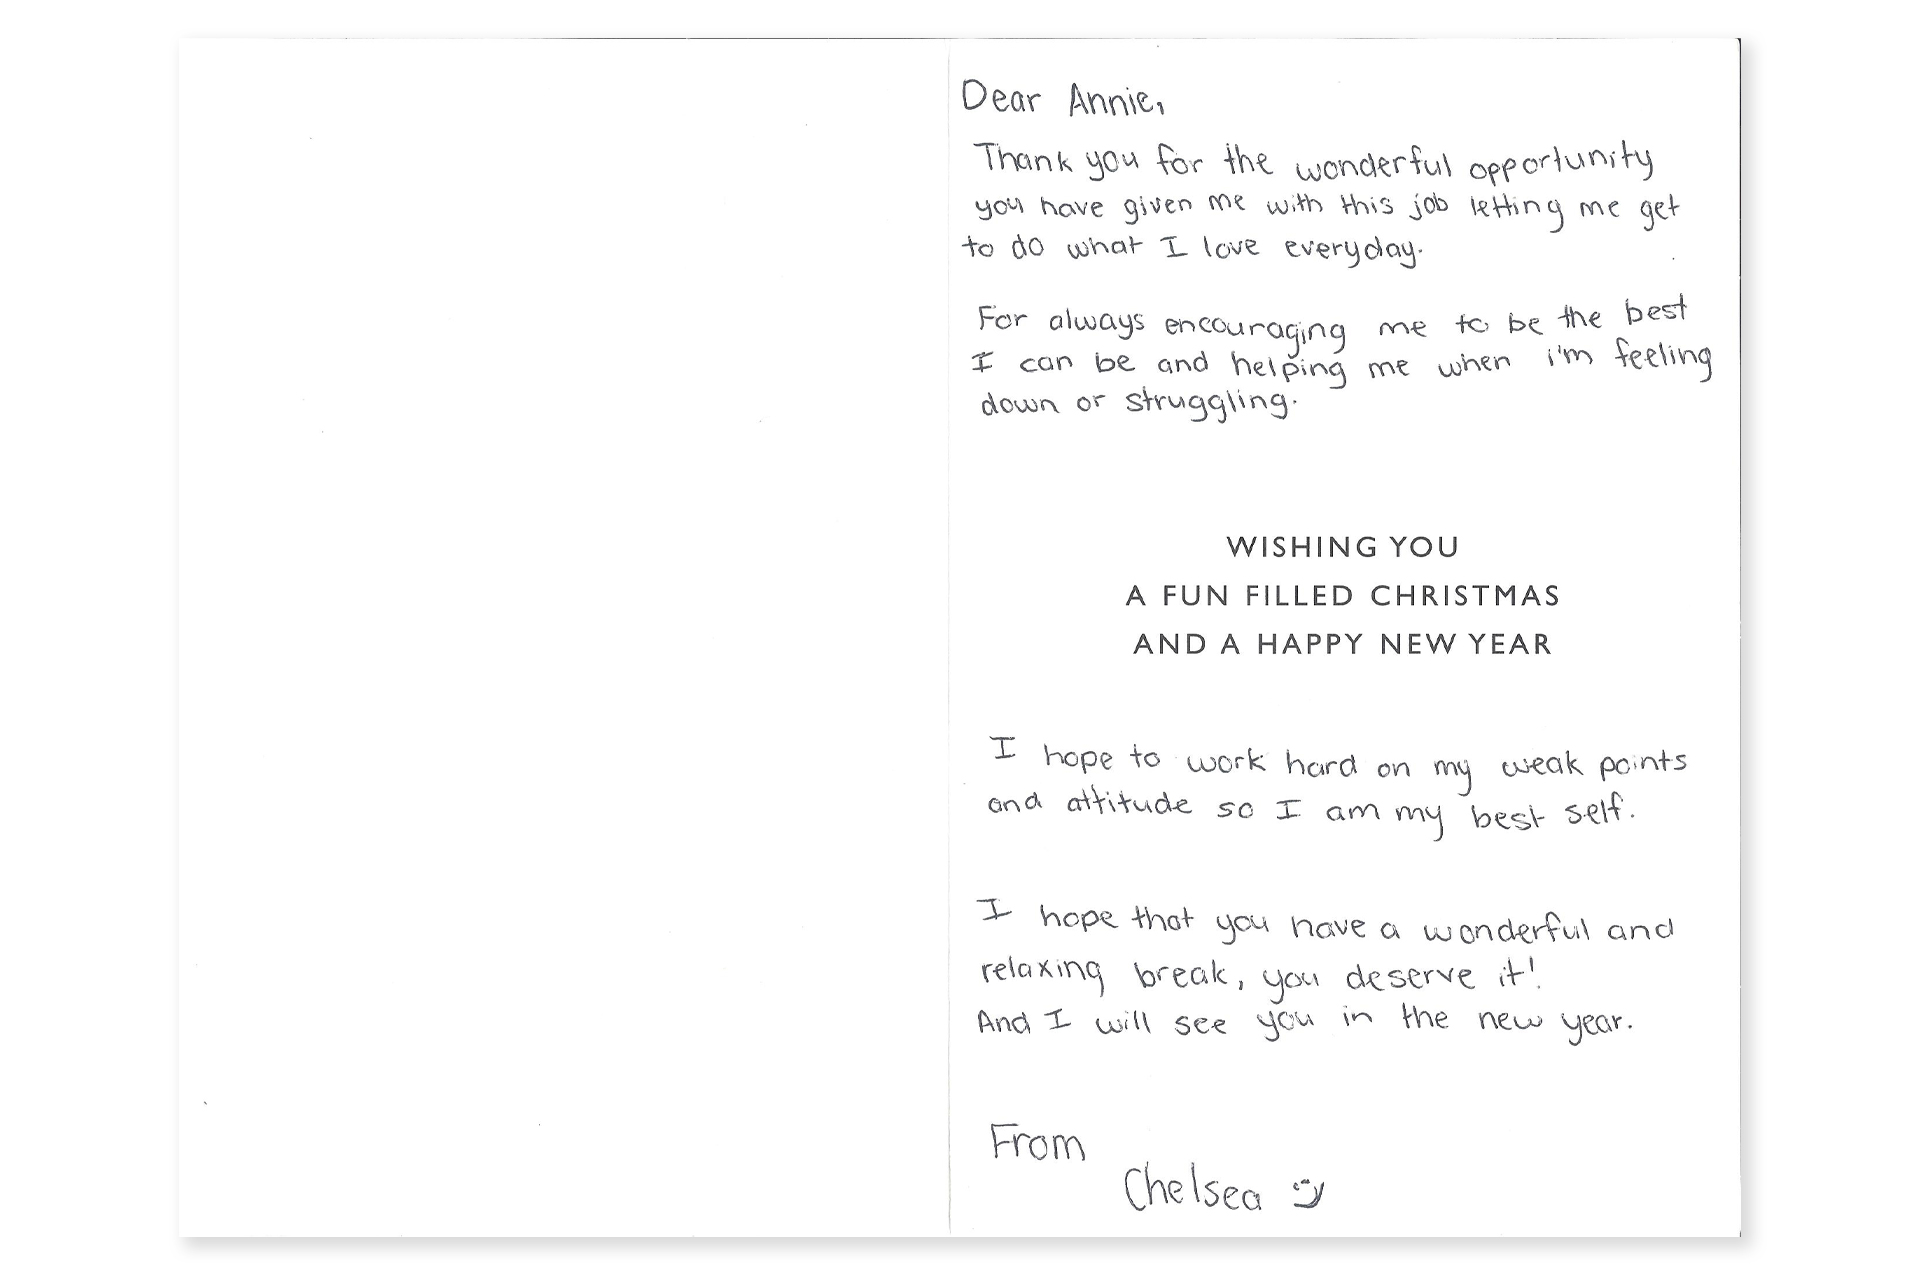 Dear Annie,
Thank you for the wonderful opportunity
you have given me with this job letting me get
to do what I love everyday.
For always encouraging me to be the best
I can be and helping me when i'm feeling
down or struggling.
WISHING YOU
A FUN FILLED CHRISTMAS
AND A HAPPY NEW YEAR
I hope to work hard on my weak points
and attitude so I am my best self.
I hope that you have a wonderful and
relaxing break, you deserve it!
And I will see you in the new year.
From
Chelsea